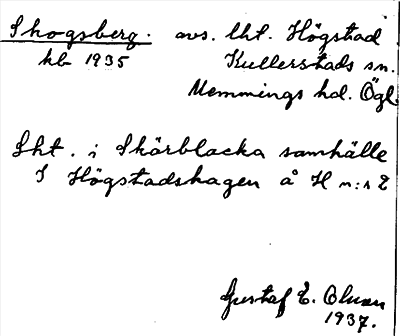 Skogsberg. avs. lht. Högstad
kb 1935 Kullerstads sn.
Memmings hd. Ögl.
Lht. i Skärblacka samhälle
I Högstadshagen å H n:r 2
Gustaf E. Olson
1937.